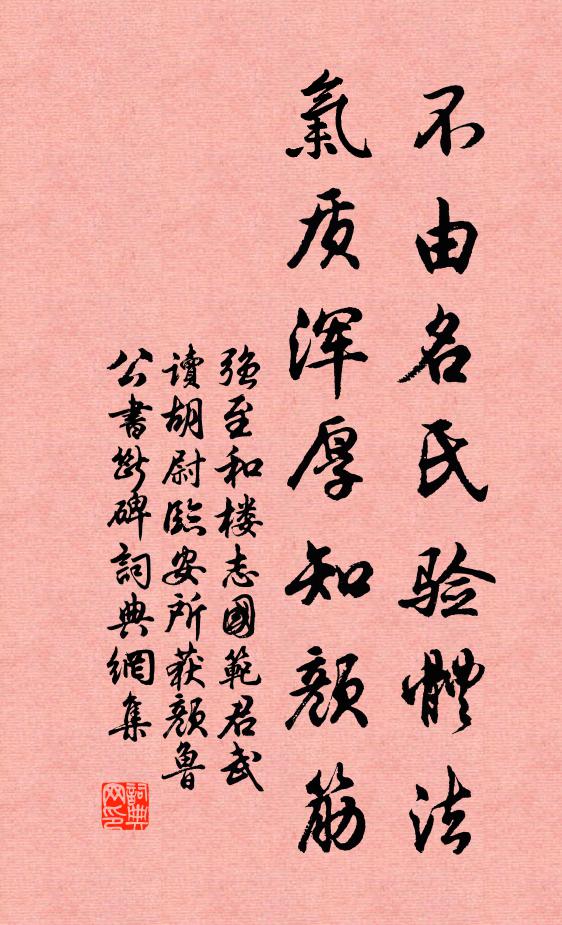 不由名氏验體法
氣质浑厚知颜筋
强至和楼志國範君武
讀胡尉臨安所获颜魯
公書断碑詞典網集
詞典网印